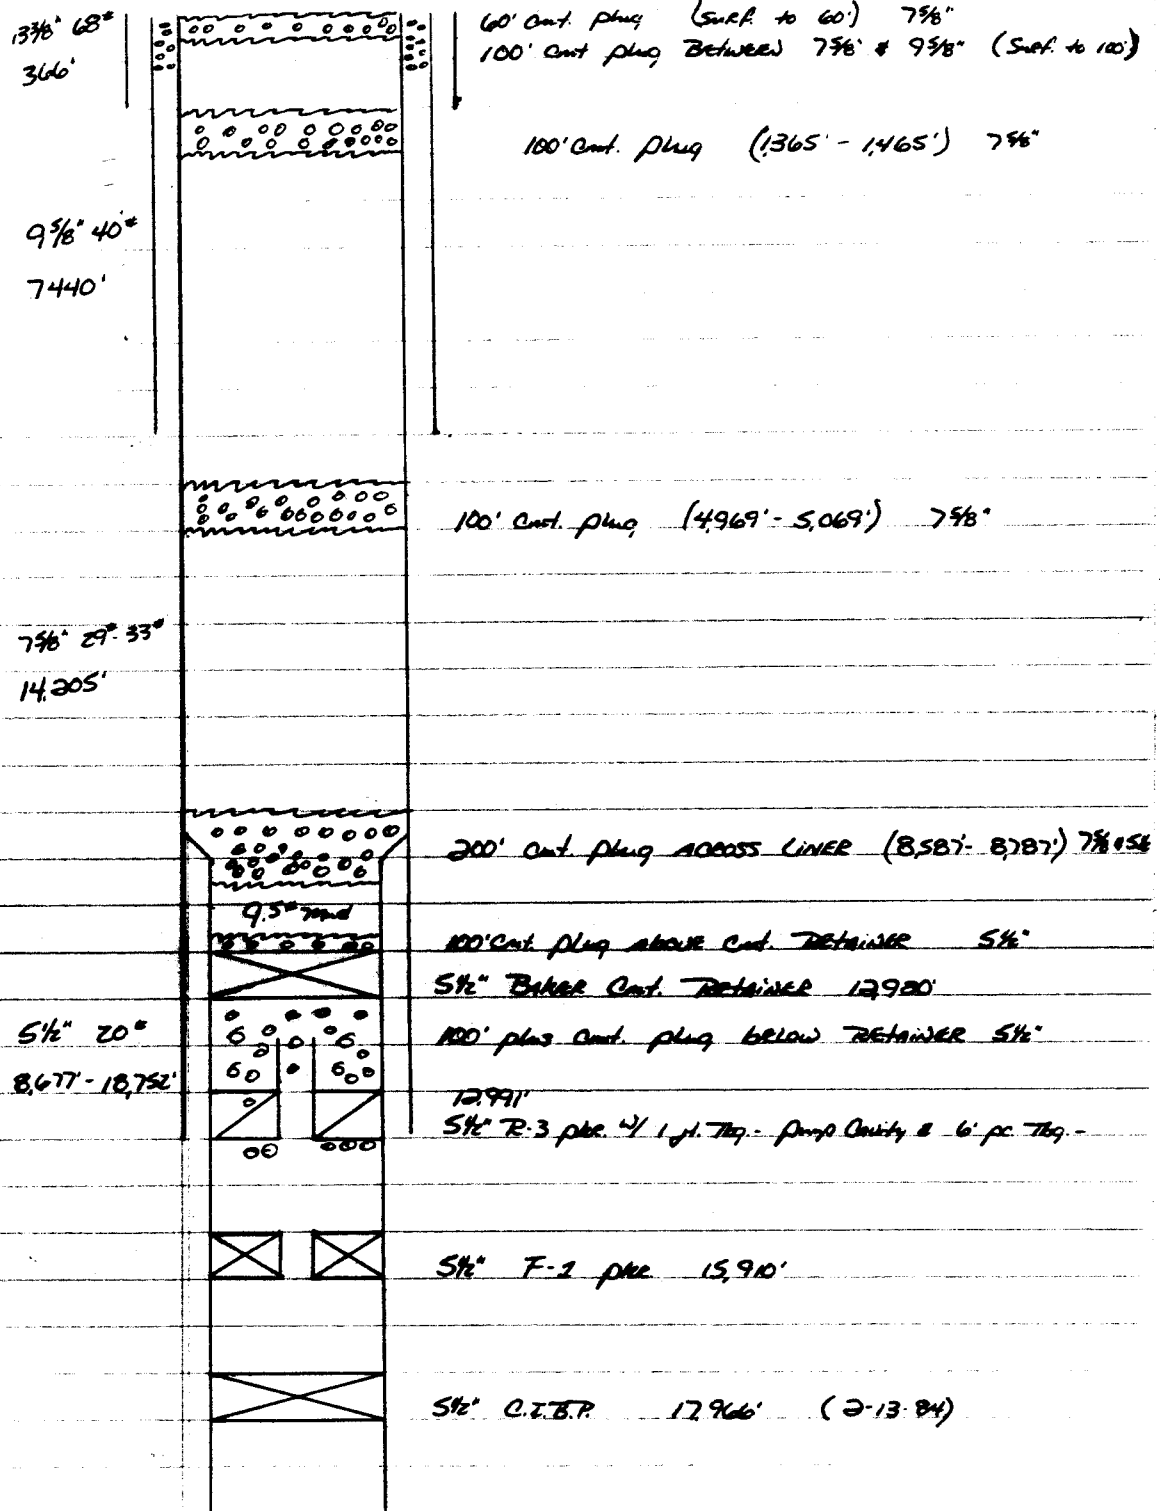 13 3/8" 68#
366'
60' Cmt. plug (Surf. to 60') 7 5/8"
100' Cmt plug BETWEEN 7 5/8" & 9 5/8" (Surf. to 100')
100' Cmt. plug (1,365' - 1,465') 7 5/8"
9 5/8" 40#
7440'
100' Cmt. plug (4,969' - 5,069') 7 5/8"
7 5/8" 29#-33#
14,205'
200' Cmt. plug ACROSS LINER (8,587' - 8,787') 7 5/8 & 5 1/2
9.5# mud
100' Cmt. plug above Cmt. RETAINER 5 1/2"
5 1/2" BAKER Cmt. RETAINER 12,980'
5 1/2" 20#
8,677' - 18,752'
100' plus Cmt. plug below RETAINER 5 1/2"
12,991'
5 1/2" R-3 pkr. w/ 1 jt. Tbg. - pump Cavity & 6' pc Tbg. -
5 1/2" F-1 pkr. 15,910'
5 1/2" C.I.B.P. 17,966' (2-13-84)